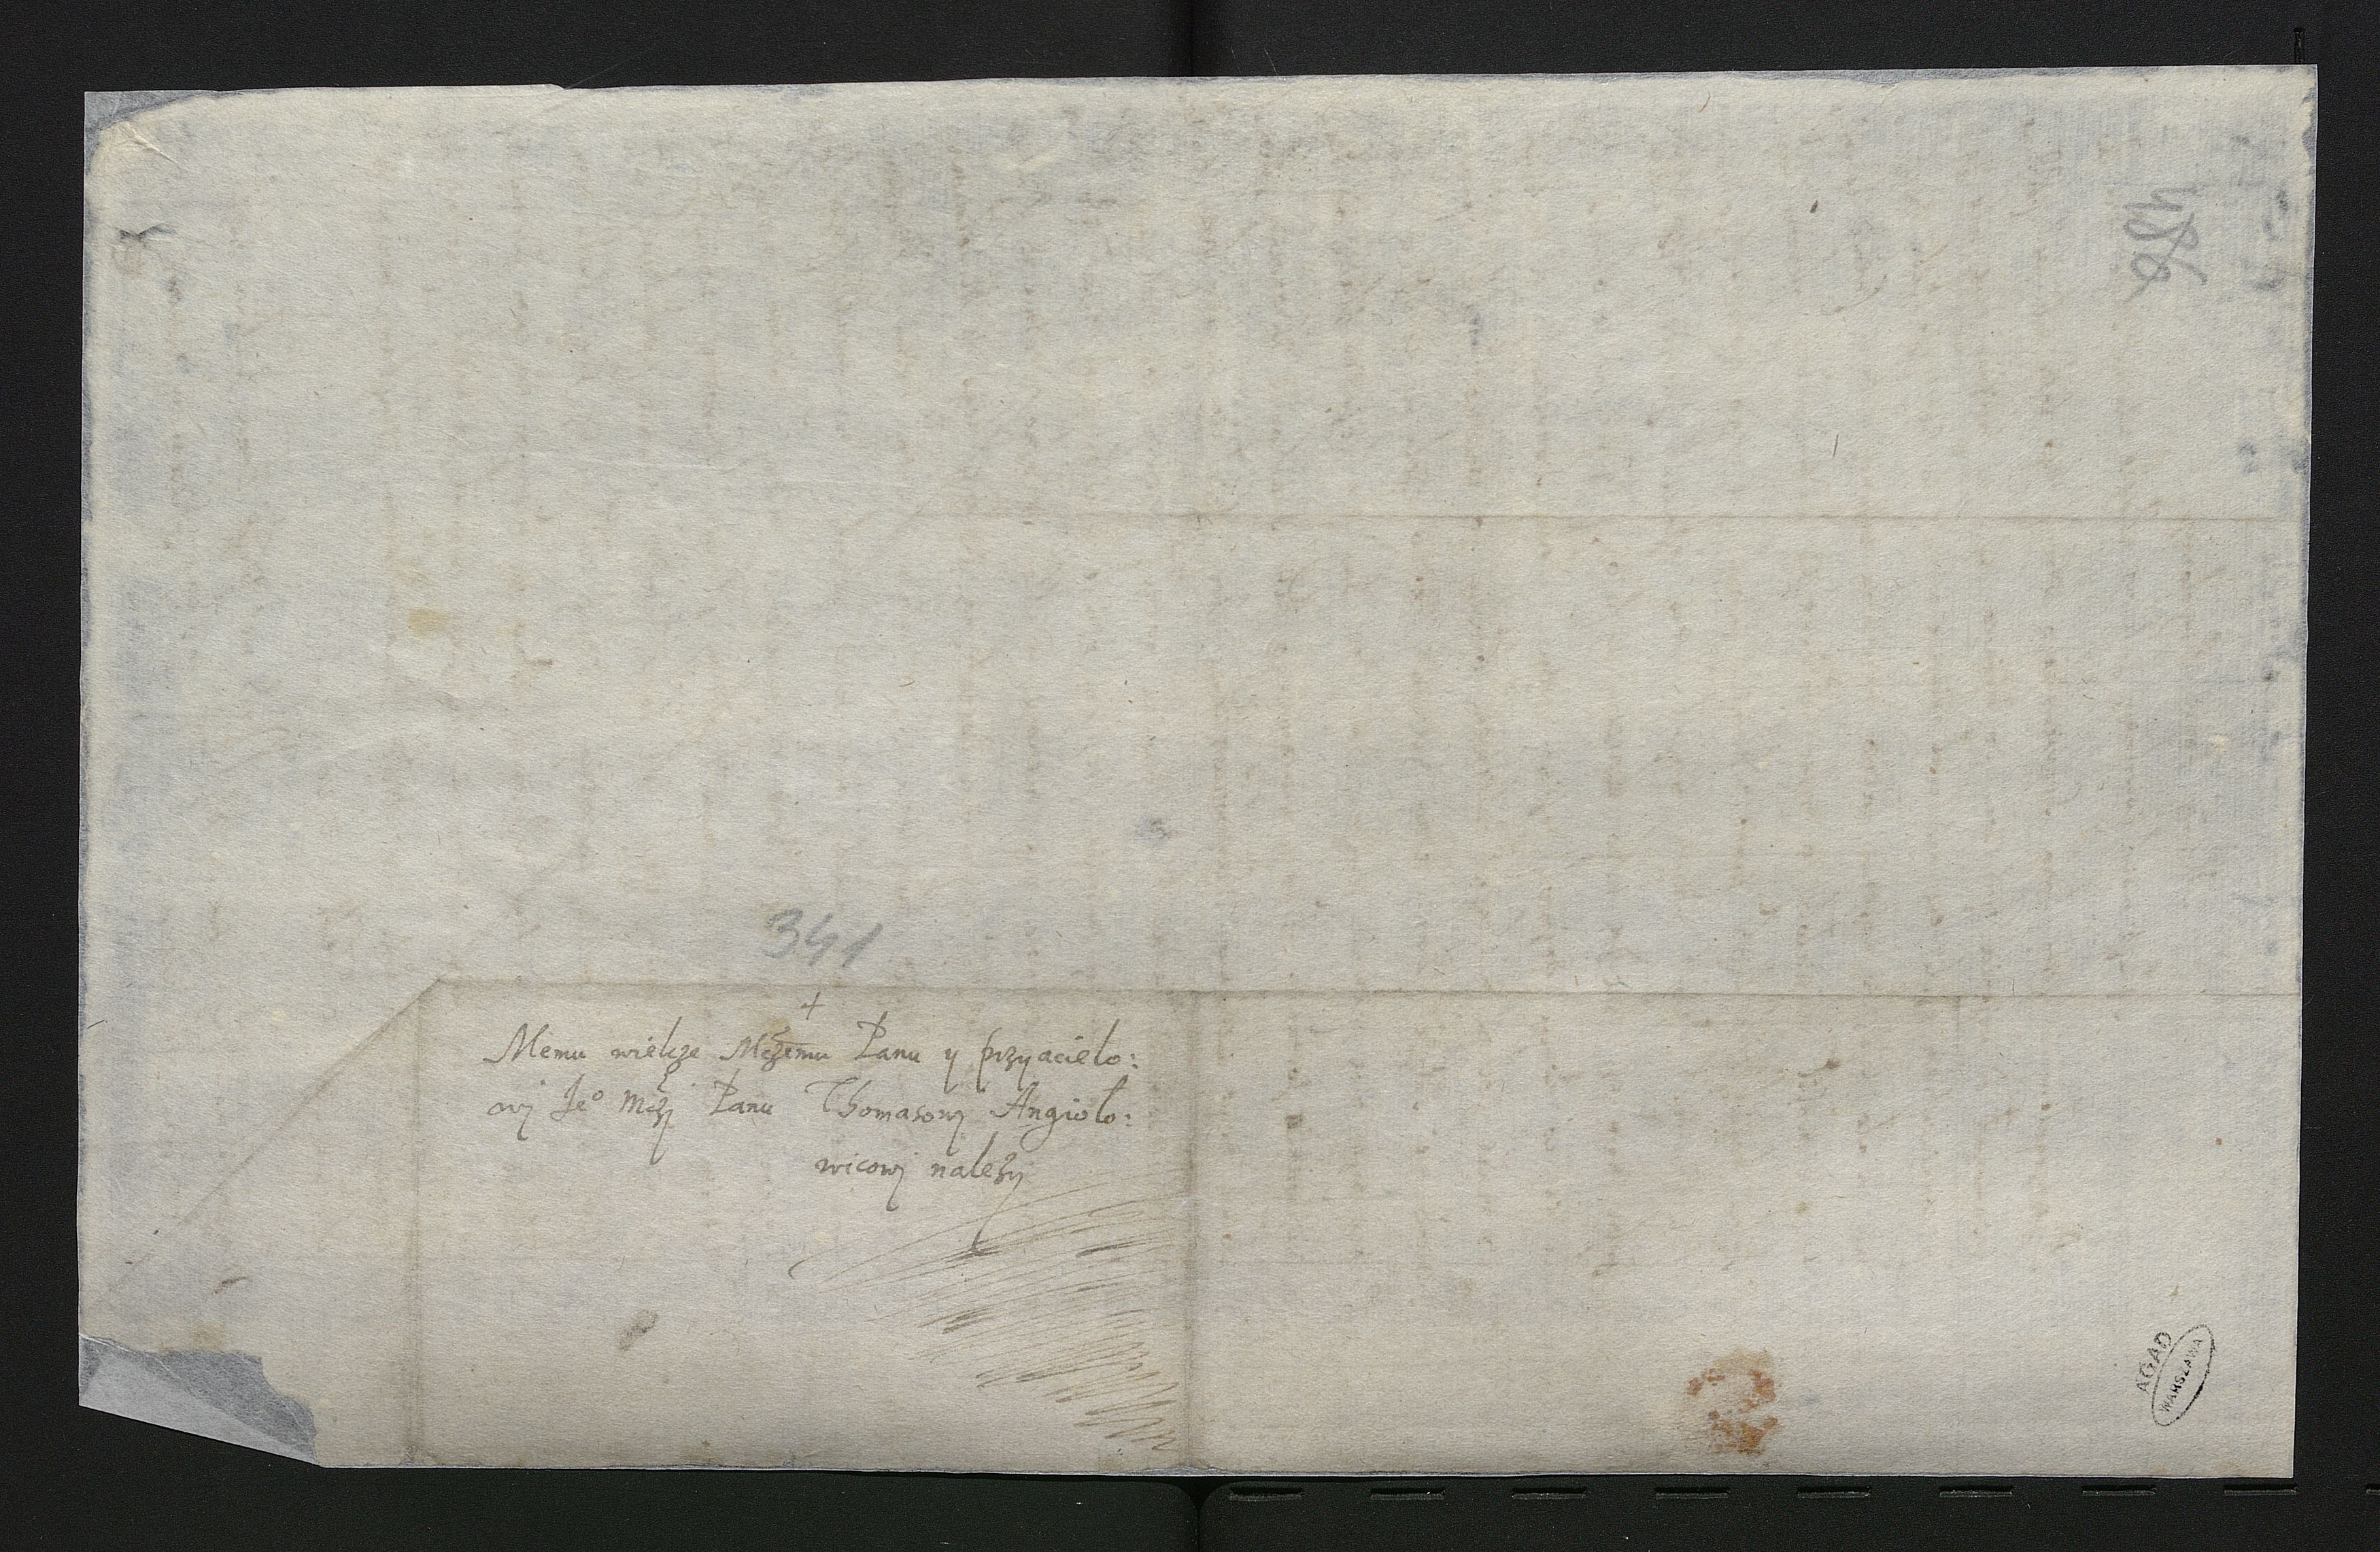 341
+
Memu wielcze Mczemu Panu y przyacielo:
wj Jeo Mczj Panu Thomasowj Angiolo:
wicowj należy
AGAD
WARSZAWA